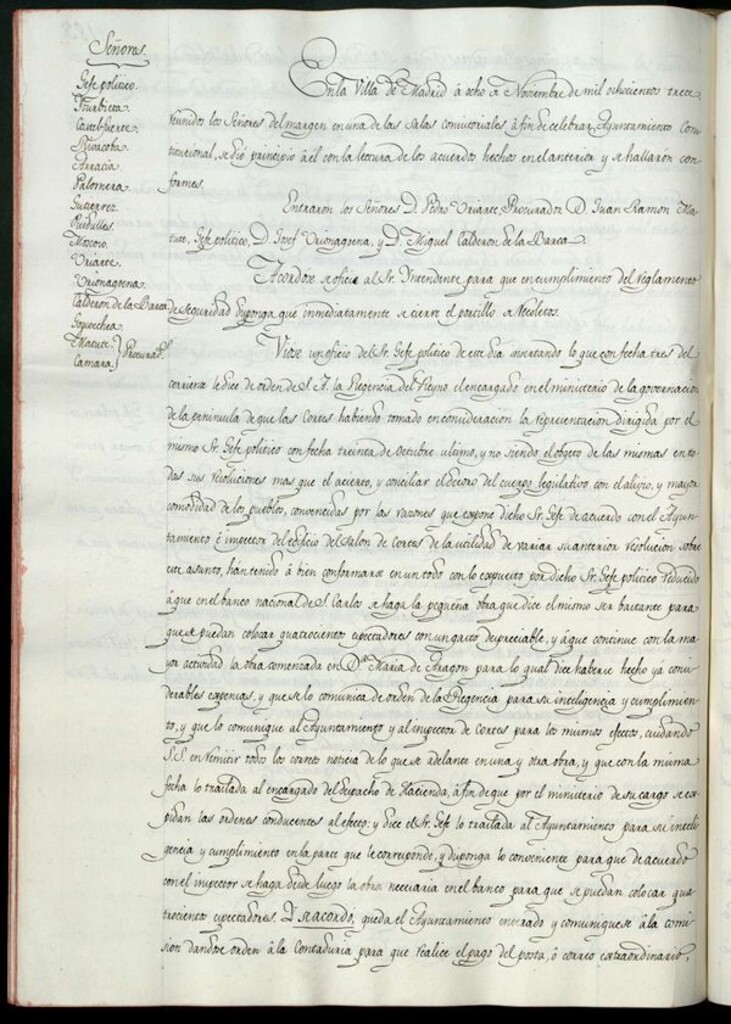 Señores.
Gefe politico.
Yturbieta.
Castelfuerte.
Arracia.
Palomera.
Gutierrez.
Moscoso.
Uriarte.
Urionagoena.
Calderon de la Barca
Goycochea.
Matute.
Camara. } Procurads.
En la Villa de Madrid á ocho de Noviembre de mil ochocientos trece,
reunidos los Señores del margen en una de las salas consistoriales á fin de celebrar Ayuntamiento Cons-
titucional, se dió principio á él con la lectura de los acuerdos hechos en el anterior y se hallarón con-
formes.
Entraron los Señores D. Pedro Uriarte, Procurador D. Juan Ramon Ma-
tute, Gefe politico, D. Josef Urionagoena, y D. Miguel Calderon de la Barca.
Acordose se oficie al Sr. Yntendente para que en cumplimiento del reglamento
de seguridad disponga que inmediatamente se cierre el portillo de Recoletos.
Viose un oficio del Sr. Gefe politico de este dia insertando lo que con fecha tres del
corriente le dice de orden de S. A. la Regencia del Reyno el encargado en el ministerio de la governacion
de la peninsula de que las Cortes habiendo tomado en consideracion la representacion dirigida por el
mismo Sr. Gefe politico con fecha treinta de Octubre ultimo, y no siendo el objeto de las mismas en to-
das sus resoluciones mas que el acierto, y conciliar el decoro del cuerpo legislativo con el alivio, y mayor
comodidad de los pueblos, convencidas por las razones que expone dicho Sr. Gefe de acuerdo con el Ayun-
tamiento é inspector del edificio del salon de Cortes de la utilidad de variar su anterior resolucion sobre
este asunto, hán tenido á bien conformarse en un todo con lo expuesto por dicho Sr. Gefe politico reducido
á que en el banco nacional de S. Carlos se haga la pequeña obra que dice el mismo ser bastante para
que se puedan colocar quatrocientos espectadores con un gasto despreciable, y á que continue con la ma-
yor actividad la obra comenzada en Dª. Maria de Aragon para lo qual dice haberse hecho yá consi-
derables expensas, y que se lo comunica de orden de la Regencia para su inteligencia y cumplimien-
to, y que lo comunique al Ayuntamiento y al inspector de Cortes para los mismos efectos, cuidando
S.S. en remitir todos los correos noticia de lo que se adelante en una y otra obra, y que con la misma
fecha lo traslada al encargado del despacho de Hacienda, á fin de que por el ministerio de su cargo se ex-
pidan las ordenes conducentes al efecto: y dice el Sr. Gefe lo traslada al Ayuntamiento para su inteli-
gencia y cumplimiento en la parte que le corresponde, y disponga lo conveniente para que de acuerdo
con el inspector se haga desde luego la obra necesaria en el banco para que se puedan colocar qua-
trocientos espectadores. Y se acordó, queda el Ayuntamiento enterado y comuniquese á la comi-
sion dandose orden á la Contaduria para que realice el pago del posta, ó correo extraordinario,